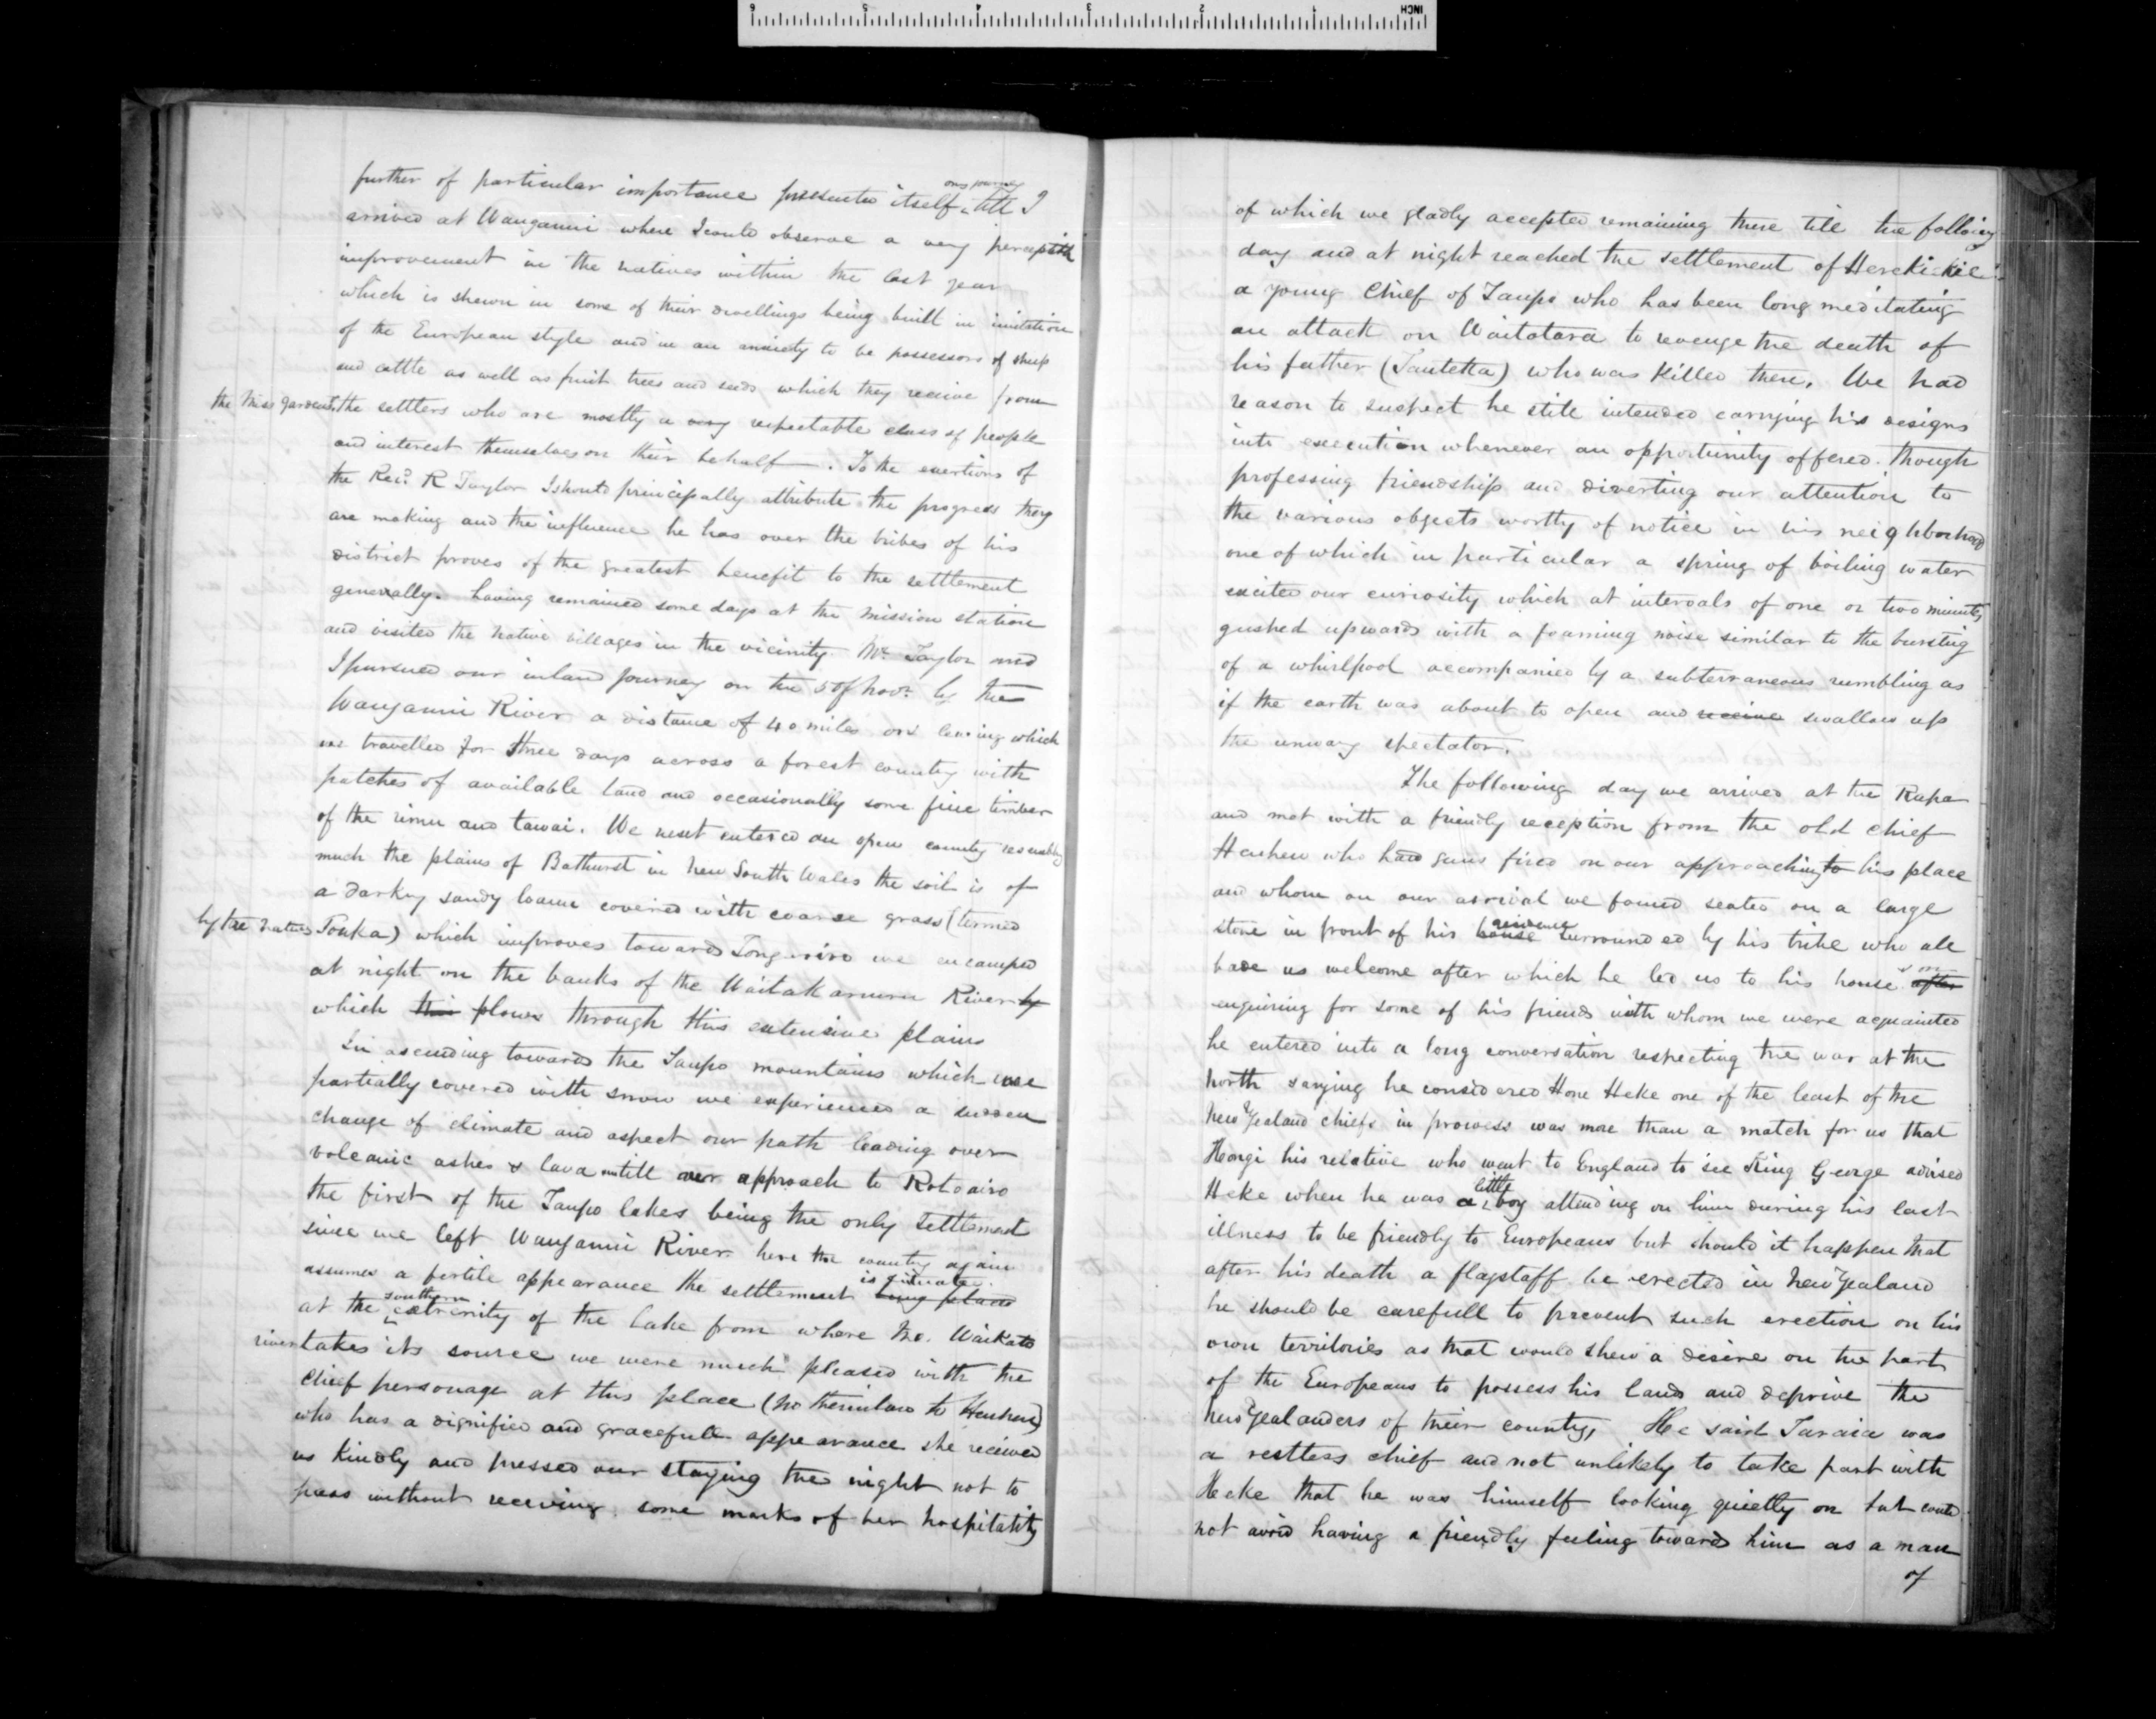 further of particular importance presented itself on my journey till I
arrived at Wanganui where I could observe a very perceptible
improvement in the natives within the last year
which is shewn in some of their dwellings being built in imitation
of the European style and in an anxiety to be possessors of sheep
and cattle as well as fruit trees and seeds which they receive from
the settlers who are mostly a very respectable class of people
and interest themselves on their behalf. To the exertions of
the Revd. R Taylor I should principally attribute the progress they
are making and the influence he has over the tribes of his
district proves of the greatest benefit to the settlement
generally. having remained some days at the mission station
and visited the native villages in the vicinity Mr. Taylor and
I pursued our inland journey on the 5 of Novr. by the
Wanganui River a distance of 40 miles on leaving which
we travelled for three days across a forest country with
patches of available land and occasionally some fine timber
of the rimu and tawai. We next entered an open country resembling
much the plains of Bathurst in New South Wales the soil is of
a darky sandy loam covered with coarse grass (termed
by the natives Touka) which improves towards Tongariro we encamped
at night on the banks of the Waitakaruru River by
which this flows through this extensive plains
In ascending towards the Taupo mountains which were
partially covered with snow we experienced a sudden
change of climate and aspect our path leading over
volcanic ashes & lava untill our approach to Rotoairo
the first of the Taupo lakes being the only settlement
since we left Wanganui River here the country again
assumes a fertile appearance the settlement being placed is situated
at the southern extremity of the lake from where the Waikato
river takes its source we were much pleased with the
chief personage at this place (Mother in law to Heuheu)
who has a dignified and gracefull appearance she received
us kindly and pressed our staying the night not to
pass without receiving some marks of her hospitality
of which we gladly accepted remaining there till the following
day and at night reached the settlement of Herekiekie
a young Chief of Taupo who has been long meditating
an attack on Waitotara to revenge the death of
his father (Tauteka) who was killed there. We had
reason to suspect he still intended carrying his designs
into execution whenever an opportunity offered. though
professing friendship and diverting our attention to
the various objects worthy of notice in his neighborhood
one of which in particular a spring of boiling water
excited our curiosity which at intervals of one or two minutes
gushed upwards with a foaming noise similar to the bursting
of a whirlpool accompanied by a subterraneous rumbling as
if the earth was about to open and receive swallow up
the unwary spectator.
The following day we arrived at the Rapa
and met with a friendly reception from the old chief
Heuheu who had guns fired on our approaching to his place
and whom on our arrival we found seated on a large
stone in front of his house residence surrounded by his tribe who all
bade us welcome after which he led us to his house after & on
enquiring for some of his friends with whom we were acquainted
he entered into a long conversation respecting the war at the
North saying he considered Hone Heke one of the least of the
New Zealand chiefs in prowess was more than a match for us that
Hongi his relative who went to England to see King George advised
Heke when he was a little boy attending on him during his last
illness to be friendly to Europeans but should it happen that
after his death a flagstaff be erected in New Zealand
he should be carefull to prevent such erection on his
own territories as that would shew a desire on the part
of the Europeans to possess his lands and deprive the
New Zealanders of their country, He said Taraia was
a restless chief and not unlikely to take part with
Heke that he was himself looking quietly on but could
not avoid having a friendly feeling towards him as a man
of
INCH 1 2 3 4 5 6